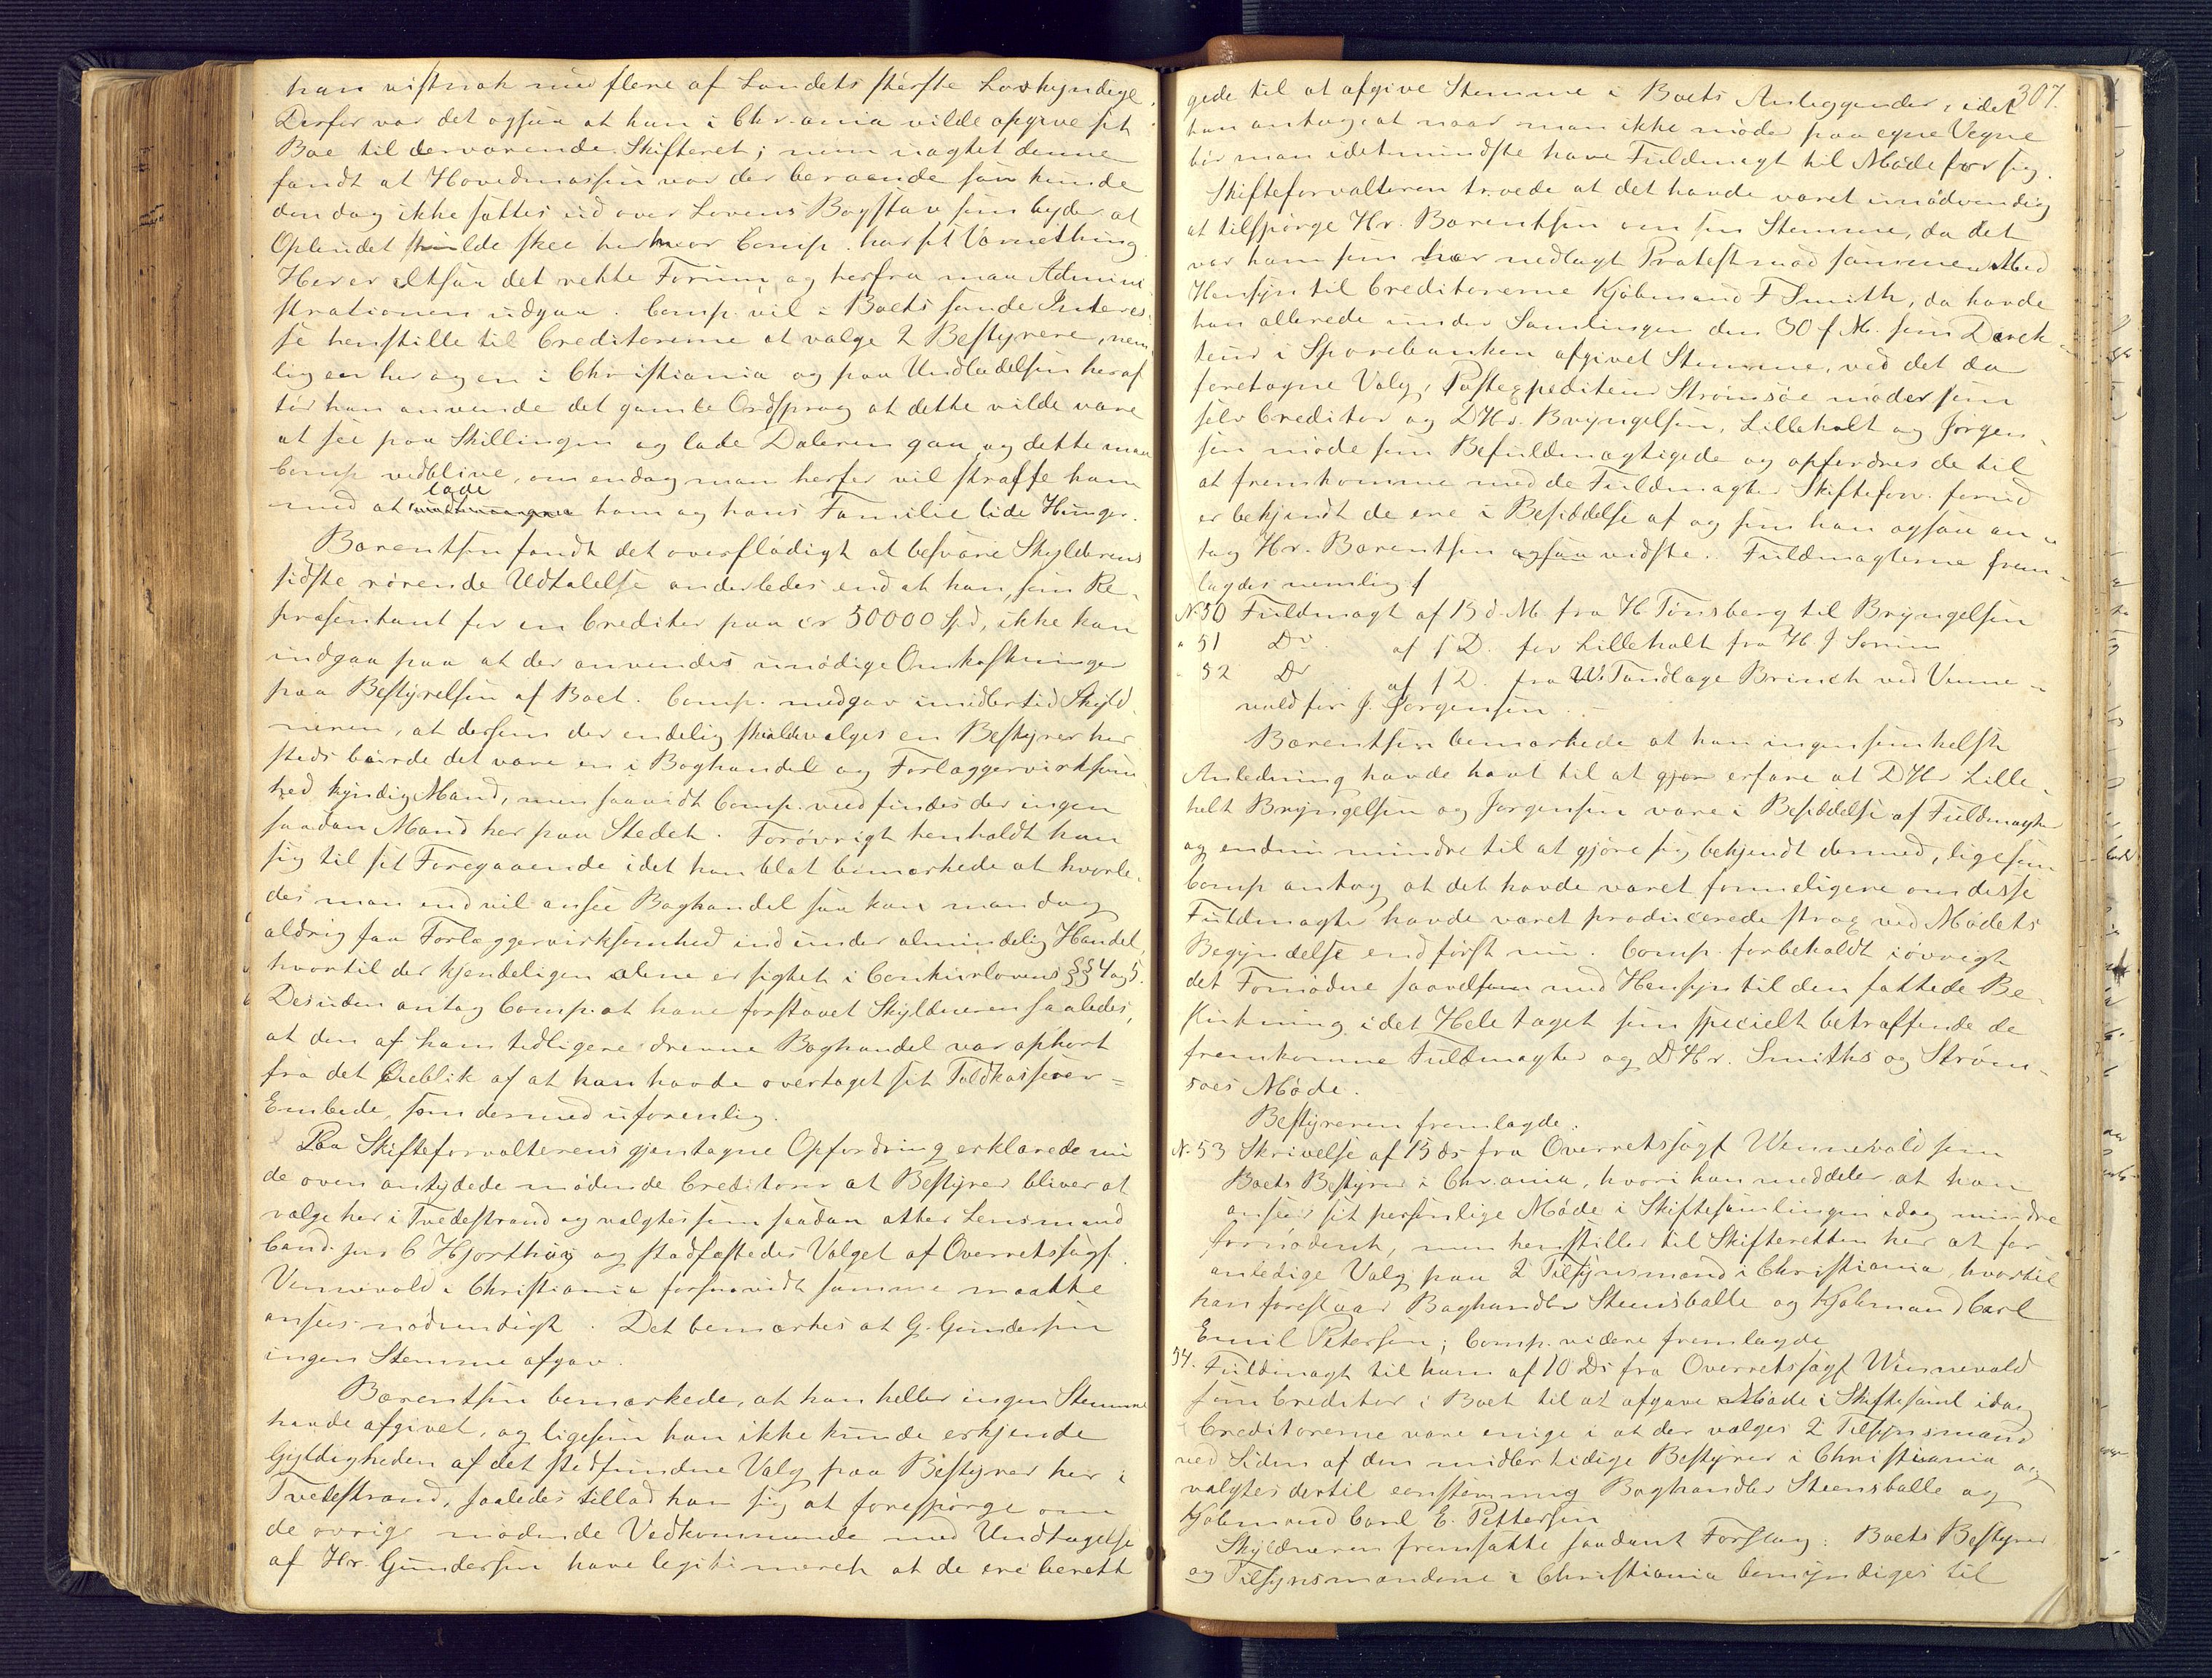 han vistnok med flere af Landets største Lovkyndige.
Derfor var det ogsaa at han i Chr.ania vilde opgive sit
Boe til derværende Skifteret; men uagtet denne
fandt at Hovedmassen var der beroende saa kunde
den dog ikke sættes ud over Lovens Bogstav som byder at
Opbudet skulde skee her hvor Comp. har sit Værnething.
Her er altsaa det rette Forum, og herfra maa Admini
strationen udgaa. Comp. vil i Boets sande Interes-
se henstille til Creditorerne at vælge 2 Bestyrere, nem-
lig een her og en i Christiania og paa Undladelsen heraf
tør han anvende det gamle Ordsprog at dette vilde være
at see paa Skillingen og lade Daleren gaa, og dette maa
Comp vedblive, om endog man herfor vil straffe ham
med at lade ham og hans Familie lide Hunger.
Barentsen fandt det overflødigt at besvare Skylderens
sidste rørende Udtalelse anderledes end at han, som Re-
præsentant for en Creditor paa cr 50000 Spd, ikke kan
indgaa paa at der anvendes unødige Omkostninger
paa Bestyrelsen af Boet. Comp. medgav imidlertid Skyld-
neren, at dersom der endelig skulde vælges en Bestyrer her
steds burde det være en i Boghandel og Forlæggervirksom
hed kyndig Mand, men saavidt Comp. veed findes der ingen
saadan Mand her paa Stedet. Forøvrigt henholdt han
sig til sit Foregaaende idet han blot bemærkede at hvorle-
des man end vil ansee Boghandel saa kan man dog
aldrig faa Forlæggervirksomhed ind under almindelig Handel,
hvortil der kjendeligen alene er sigtet i Conkurlovens §§ 4 og 5.
Desuden antog Comp. at have forstaaet Skyldneren saaledes,
at den af ham tidligere drevne Boghandel var ophørt
fra det Øieblik af at han havde overtaget sit Toldkasserer=
Embede, som dermed uforenlig.
Paa Skifteforvalterens gjentagne Opfordring erklærede nu
de oven antydede mødende Creditorer at Bestyrer bliver at
vælge her i Tvedestrand og valgtes som saadan atter Lensmand
Cand. jur C Hjorthøy og stadfæstedes Valget af Overretssagf.
Vennevold i Christiania forsaavidt samme maatte
ansees nødvendigt. Det bemærkes at G. Gundersen
ingen Stemme afgav.
Barentsen bemærkede, at han heller ingen Stemme
havde afgivet, og ligesom han ikke kunde erkjende
Gyldigheden af det stedfundne Valg paa Bestyrer her i
Tvedestrand, saaledes tillod han sig at forespørge om
de øvrige mødende Vedkommende med Undtagelse
af Hr. Gundersen have legitimeret at de ere berett
307.
gede til at afgive Stemme i Boets Anliggender, idet
han antog, at naar man ikke møder paa egne Vegne
bør man idetmindste have Fuldmagt til Møde for sig.
Skifteforvalteren troede at det havde været unødvendig
at tilspørge Hr. Barentsen om sin Stemme, da det
var ham som har nedlagt Protest mod sammen. Med
Hensyn til Creditorerne Kjøbmand F Smith, da havde
han allerede under Samlingen den 30 f M. som Direk-
teur i Sparebanken afgivet Stemme, ved det da
foretagne Valg; Postexpediteur Strømsøe møder som
selv Creditor og DHr. Bryngelsen, Lilleholt og Jørgen-
sen møde som Befuldmægtigede og opfordres de til
at fremkomme med de Fuldmagter Skifteforv. forud
er bekjendt de ere i Besiddelse af og som han ogsaa an-
tog Hr. Barentsen vidste. Fuldmagterne frem-
lagdes nemlig
N. 50 Fuldmagt af 13 d. M. fra H Tønsberg til Bryngelsen
" 51 Do af s D. for Lilleholt fra H J Sørum
" 52 Do af s D. fra W. Tandlæge Brinch ved Venne-
vold for J. Jørgensen. –
Barentsen bemærkede at han ingensomhelst
Anledning havde havt til at erfare at DHr Lille-
holt Bryngelsen og Jørgensen vare i Besiddelse af Fuldmagter
og endnu mindre til at gjøre sig bekjendt dermed, ligesom
Comp antog, at det havde været formeligere om disse
Fuldmagter havde været producerede strax ved Mødets
Begyndelse end først nu. Comp. forbeholdt iøvrigt
det Fornødne saavelsom med Hensyn til den fattede Be-
slutning i det Hele taget som specielt betræffende de
fremkomne Fuldmagter og DHr. Smiths og Strøm-
søes Møde.
Bestyreren fremlagde:
N. 53 Skrivelse af 13 ds. fra Overretssagf Vennevold som
Boets Bestyrer i Chr.ania, hvori han meddeler at han
anseer sit personlige Møde i Skiftesamlingen idag mindre
fornødent, men henstiller til Skifteretten her at for
anledige Valg paa 2 Tilsynsmænd i Christiania, hvortil
han foreslaar Boghandler Steensballe og Kjøbmand Carl
Emil Petersen; Comp. videre fremlagde
54. Fuldmagt til ham af 10 Ds fra Overretssagf Vennevold
som Creditor i Boet til at afgave Møde i Skiftesaml idag
Creditorerne vare enige i at der vælges 2 Tilsynsmænd
ved Siden af den midlertidige Bestyrer i Christiania og
valgtes dertil eenstemmig Boghandler Steensballe og
Kjøbmand Carl E. Pettersen
Skyldneren fremsatte saadant Forslag: Boets Bestyrer
og Tilsynsmændene i Christiania bemyndiges til